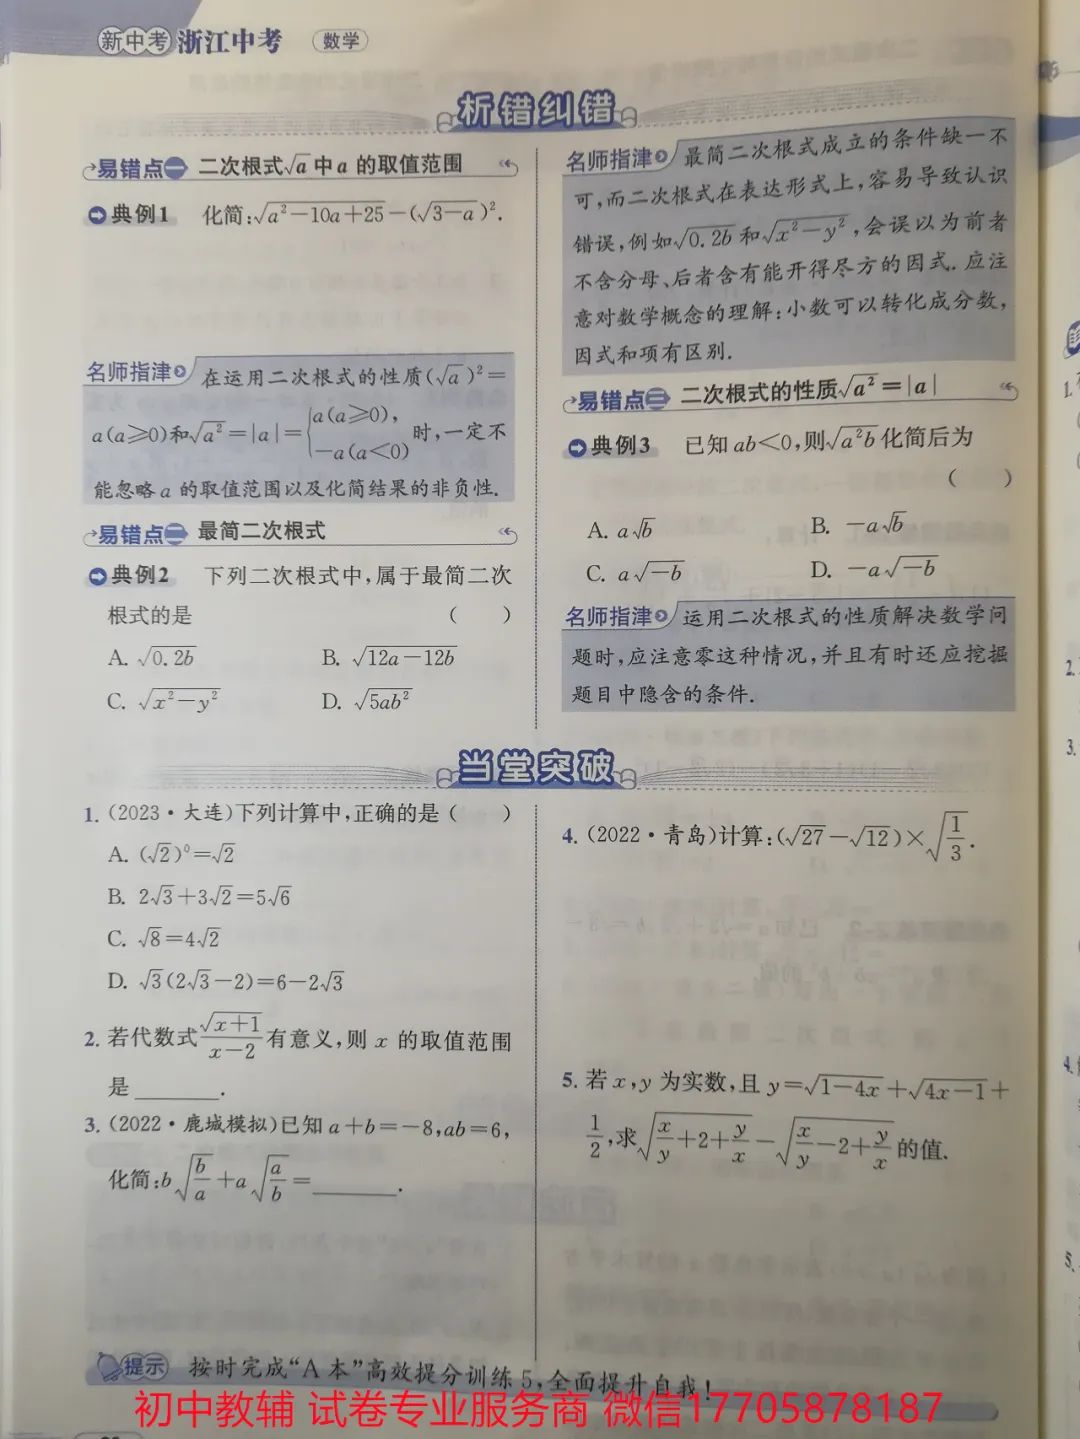 新中考 浙江中考 数学
析错纠错
易错点一 二次根式√a中a的取值范围
典例1 化简:√(a²-10a+25)-(√(3-a))².
名师指津 在运用二次根式的性质(√a)²=
a(a≥0)和√a²=|a|={a(a≥0), -a(a<0) 时,一定不
能忽略a的取值范围以及化简结果的非负性.
易错点二 最简二次根式
典例2 下列二次根式中,属于最简二次
根式的是 ( )
A. √(0.2b) B. √(12a-12b)
C. √(x²-y²) D. √(5ab²)
名师指津 最简二次根式成立的条件缺一不
可,而二次根式在表达形式上,容易导致认识
错误,例如√(0.2b)和√(x²-y²),会误以为前者
不含分母、后者含有能开得尽方的因式.应注
意对数学概念的理解:小数可以转化成分数,
因式和项有区别.
易错点三 二次根式的性质√a²=|a|
典例3 已知ab<0,则√(a²b)化简后为
( )
A. a√b B. -a√b
C. a√(-b) D. -a√(-b)
名师指津 运用二次根式的性质解决数学问
题时,应注意零这种情况,并且有时还应挖掘
题目中隐含的条件.
当堂突破
1. (2023·大连)下列计算中,正确的是( )
A. (√2)⁰=√2
B. 2√3+3√2=5√6
C. √8=4√2
D. √3(2√3-2)=6-2√3
2. 若代数式√(x+1)/(x-2)有意义,则x的取值范围
是______.
3. (2022·鹿城模拟)已知a+b=-8,ab=6,
化简:b√(b/a)+a√(a/b)=______.
4. (2022·青岛)计算:(√27-√12)×√(1/3).
5. 若x,y为实数,且y=√(1-4x)+√(4x-1)+
1/2,求√(x/y+2+y/x)-√(x/y-2+y/x)的值.
提示 按时完成“A本”高效提分训练5,全面提升自我!
初中教辅 试卷专业服务商 微信17705878187